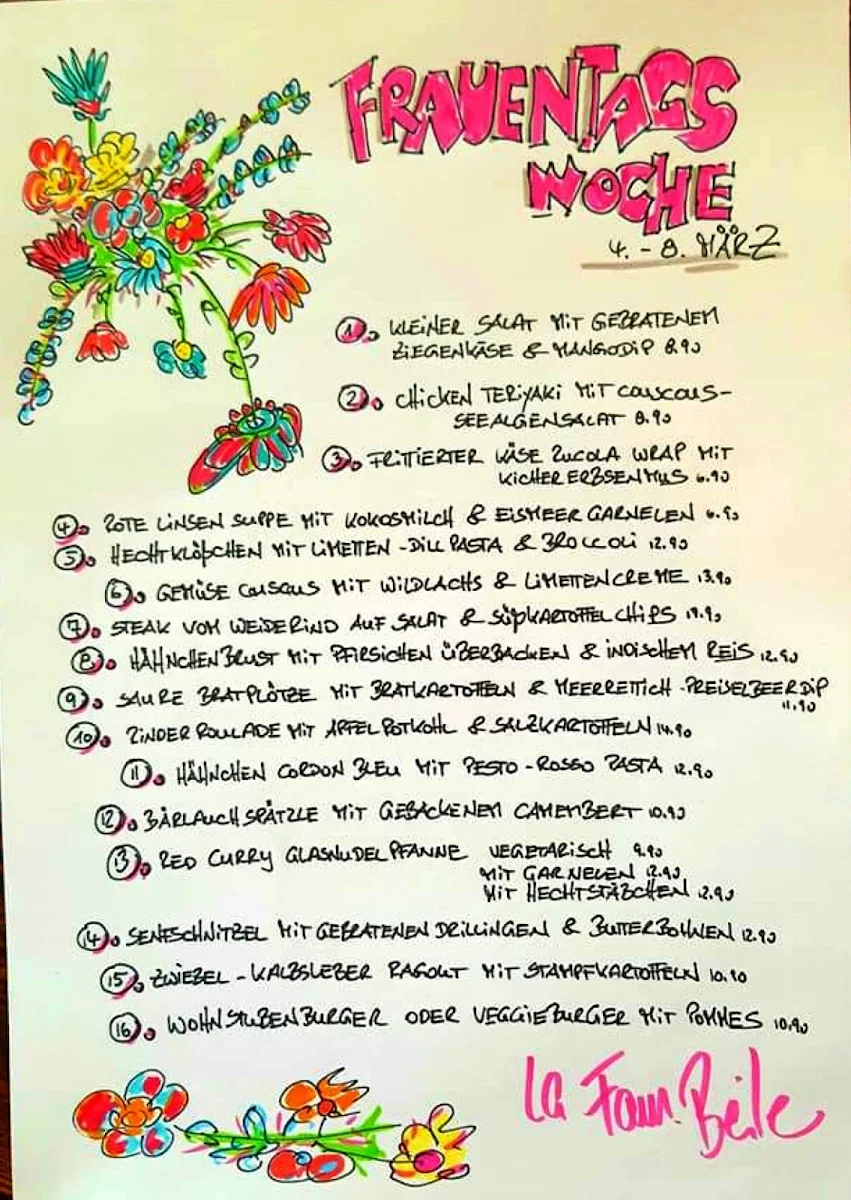 FRAUENTAGS
WOCHE
4. - 8. MÄRZ
1. KLEINER SALAT MIT GEBRATENEM
ZIEGENKÄSE & MANGODIP 8.90
2. CHICKEN TERIYAKI MIT COUSCOUS-
SEEALGENSALAT 8.90
3. FRITTIERTER KÄSE RUCOLA WRAP MIT
KICHERERBSENMUS 6.90
4. ROTE LINSEN SUPPE MIT KOKOSMILCH & EISMEER GARNELEN 6.90
5. HECHTKLÖßCHEN MIT LIMETTEN-DILL PASTA & BROCCOLI 12.90
6. GEMÜSE COUSCOUS MIT WILDLACHS & LIMETTENCREME 13.90
7. STEAK VOM WEIDERIND AUF SALAT & SÜßKARTOFFEL CHIPS 19.90
8. HÄHNCHENBRUST MIT PFIRSICHEN ÜBERBACKEN & INDISCHEM REIS 12.90
9. SAURE BRATPLÖTZE MIT BRATKARTOFFELN & MEERRETTICH-PREISELBEERDIP
11.90
10. RINDERROULADE MIT APFELROTKOHL & SALZKARTOFFELN 14.90
11. HÄHNCHEN CORDON BLEU MIT PESTO-ROSSO PASTA 12.90
12. BÄRLAUCHSPÄTZLE MIT GEBACKENEM CAMEMBERT 10.90
13. RED CURRY GLASNUDELPFANNE VEGETARISCH 9.90
MIT GARNELEN 12.90
MIT HECHTSTÄBCHEN 12.90
14. SENFSCHNITZEL MIT GEBRATENEN DRILLINGEN & BUTTERBOHNEN 12.90
15. ZWIEBEL-KALBSLEBER RAGOUT MIT STAMPFKARTOFFELN 10.90
16. WOHNSTUBENBURGER ODER VEGGIEBURGER MIT POMMES 10.90
La Fam. Beile